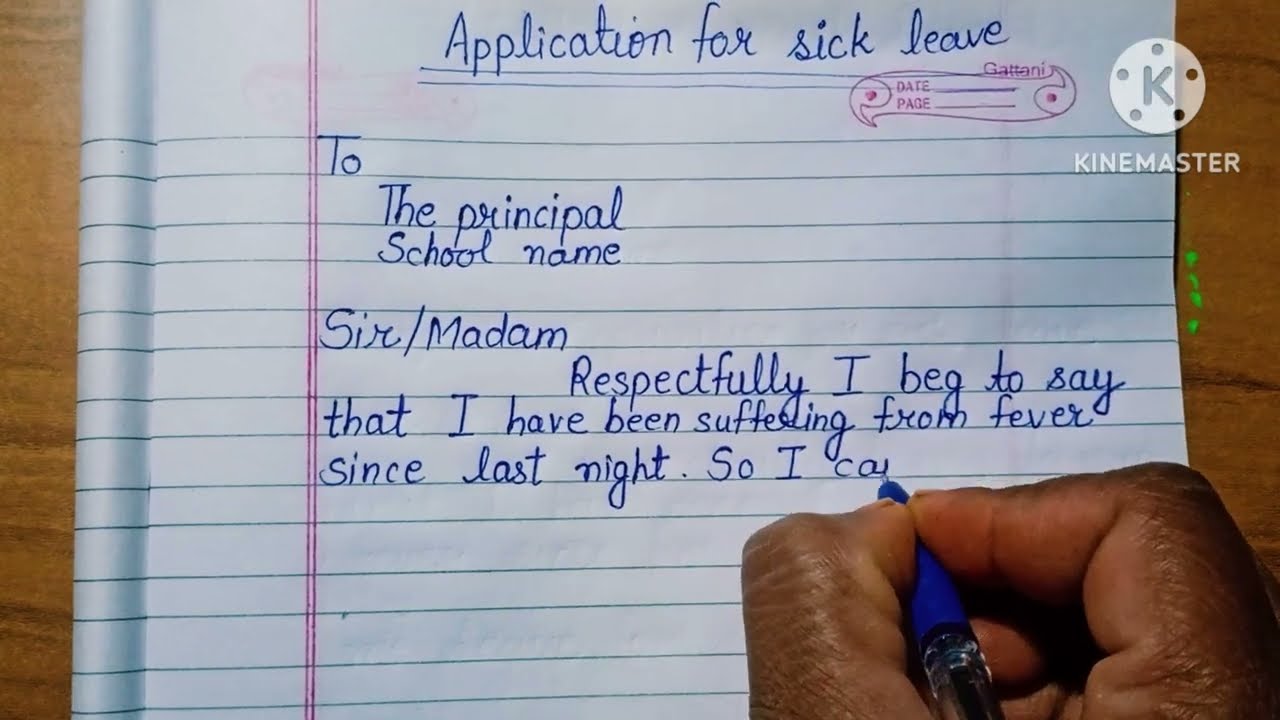 Application for sick leave
Gattani
DATE
PAGE
K
KINEMASTER
To
The principal
School name
Sir/Madam
Respectfully I beg to say
that I have been suffering from fever
since last night. So I ca